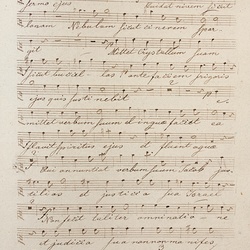 sermo ejus
lanam Nebulam sicut cinerem spar
git Mittet Crystallum suam
sicut buccel- las ante faciem frigoris
ejus quis susti nebit
mittet verbum suum et lique faciet ea
Flavit spiritus ejus et fluent aquæ
Qui annuntiat verbum suum Jacob jus
titias et justitia sua Israel
Non fecit taliter omni natio- ne
et judicia sua non non ma nifes